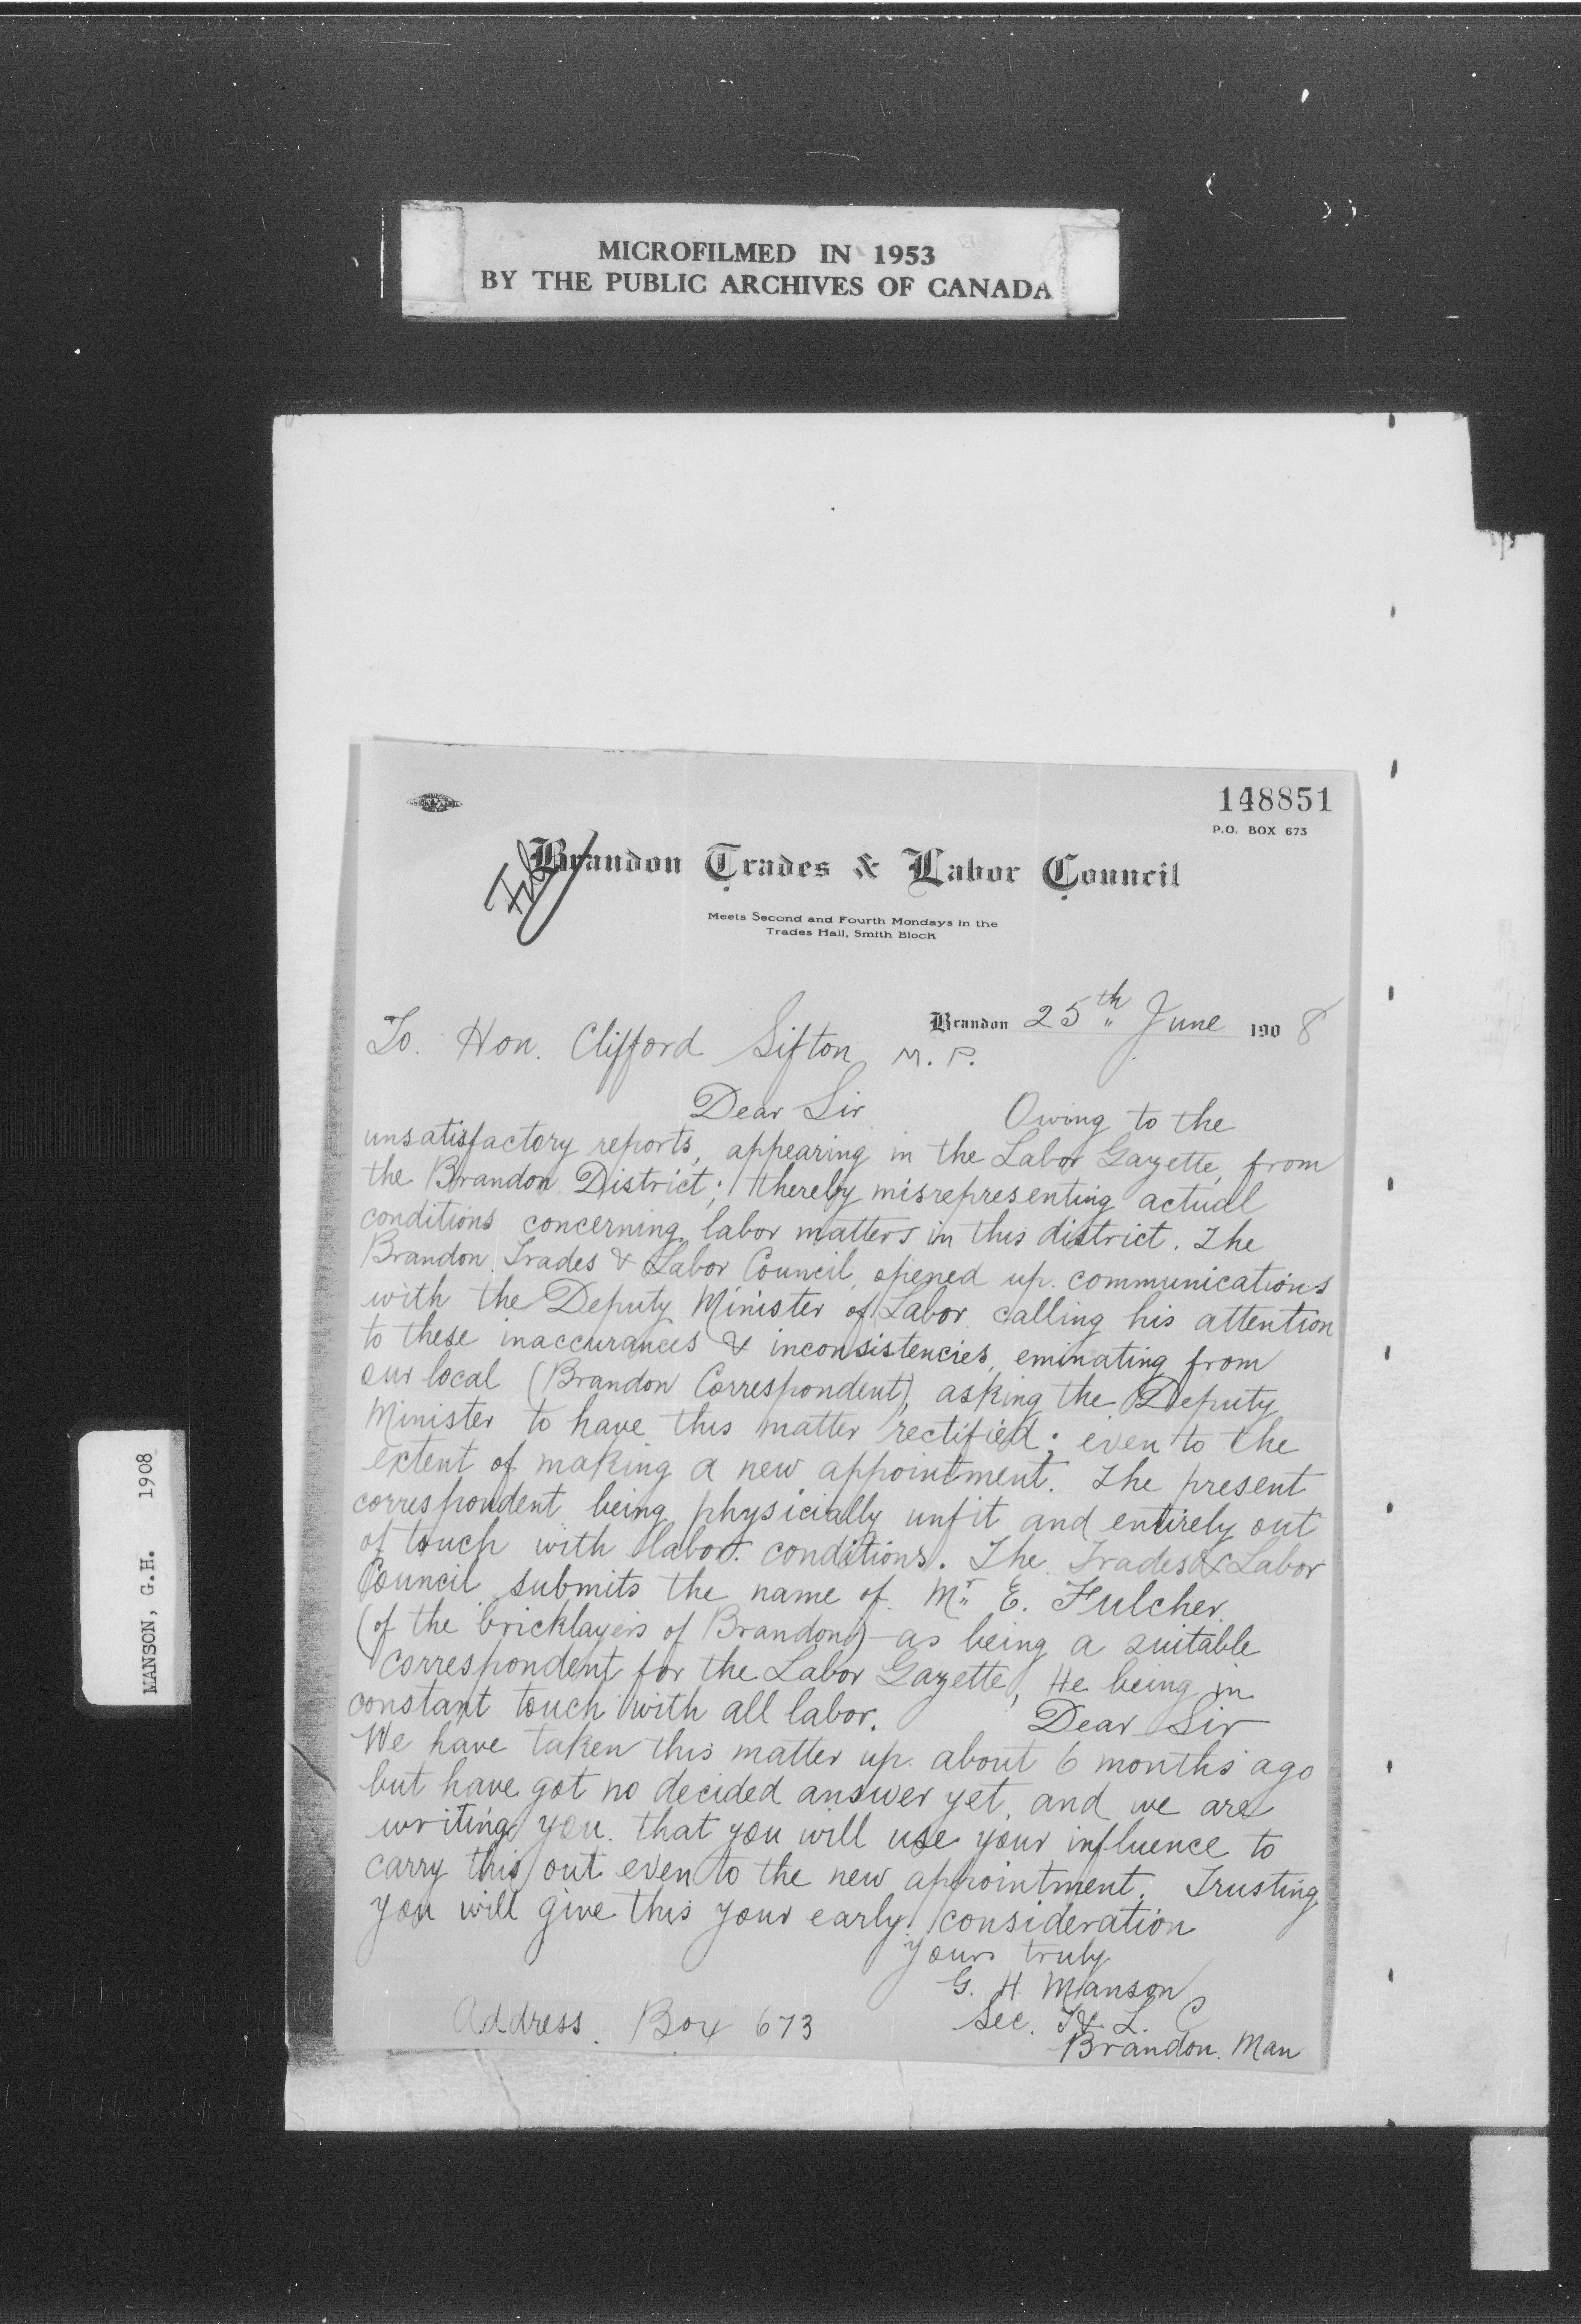 MICROFILMED IN 1953
BY THE PUBLIC ARCHIVES OF CANADA
MANSON, G.H. 1908
148851
P.O. BOX 673
File
Brandon Trades & Labor Council
Meets Second and Fourth Mondays in the
Trades Hall, Smith Block
Brandon 25th June 1908
To. Hon. Clifford Sifton M. P.
Dear Sir Owing to the
unsatisfactory reports, appearing in the Labor Gazette, from
the Brandon District; thereby misrepresenting actual
conditions concerning labor matters in this district. The
Brandon Trades & Labor Council, opened up communications
with the Deputy Minister of Labor calling his attention
to these inaccurances & inconsistencies, eminating from
our local (Brandon Correspondent), asking the Deputy
Minister to have this matter rectified; even to the
extent of making a new appointment. The present
correspondent being physicially unfit and entirely out
of touch with labor conditions. The Trades & Labor
Council submits the name of Mr E. Fulcher
(of the bricklayers of Brandon) as being a suitable
correspondent for the Labor Gazette, He being in
constant touch with all labor. Dear Sir
We have taken this matter up about 6 months ago
but have got no decided answer yet, and we are
writing you that you will use your influence to
carry this out even to the new appointment. Trusting
you will give this your early consideration
yours truly
G. H. Manson
Sec. T & L. C
Address. Box 673
Brandon. Man